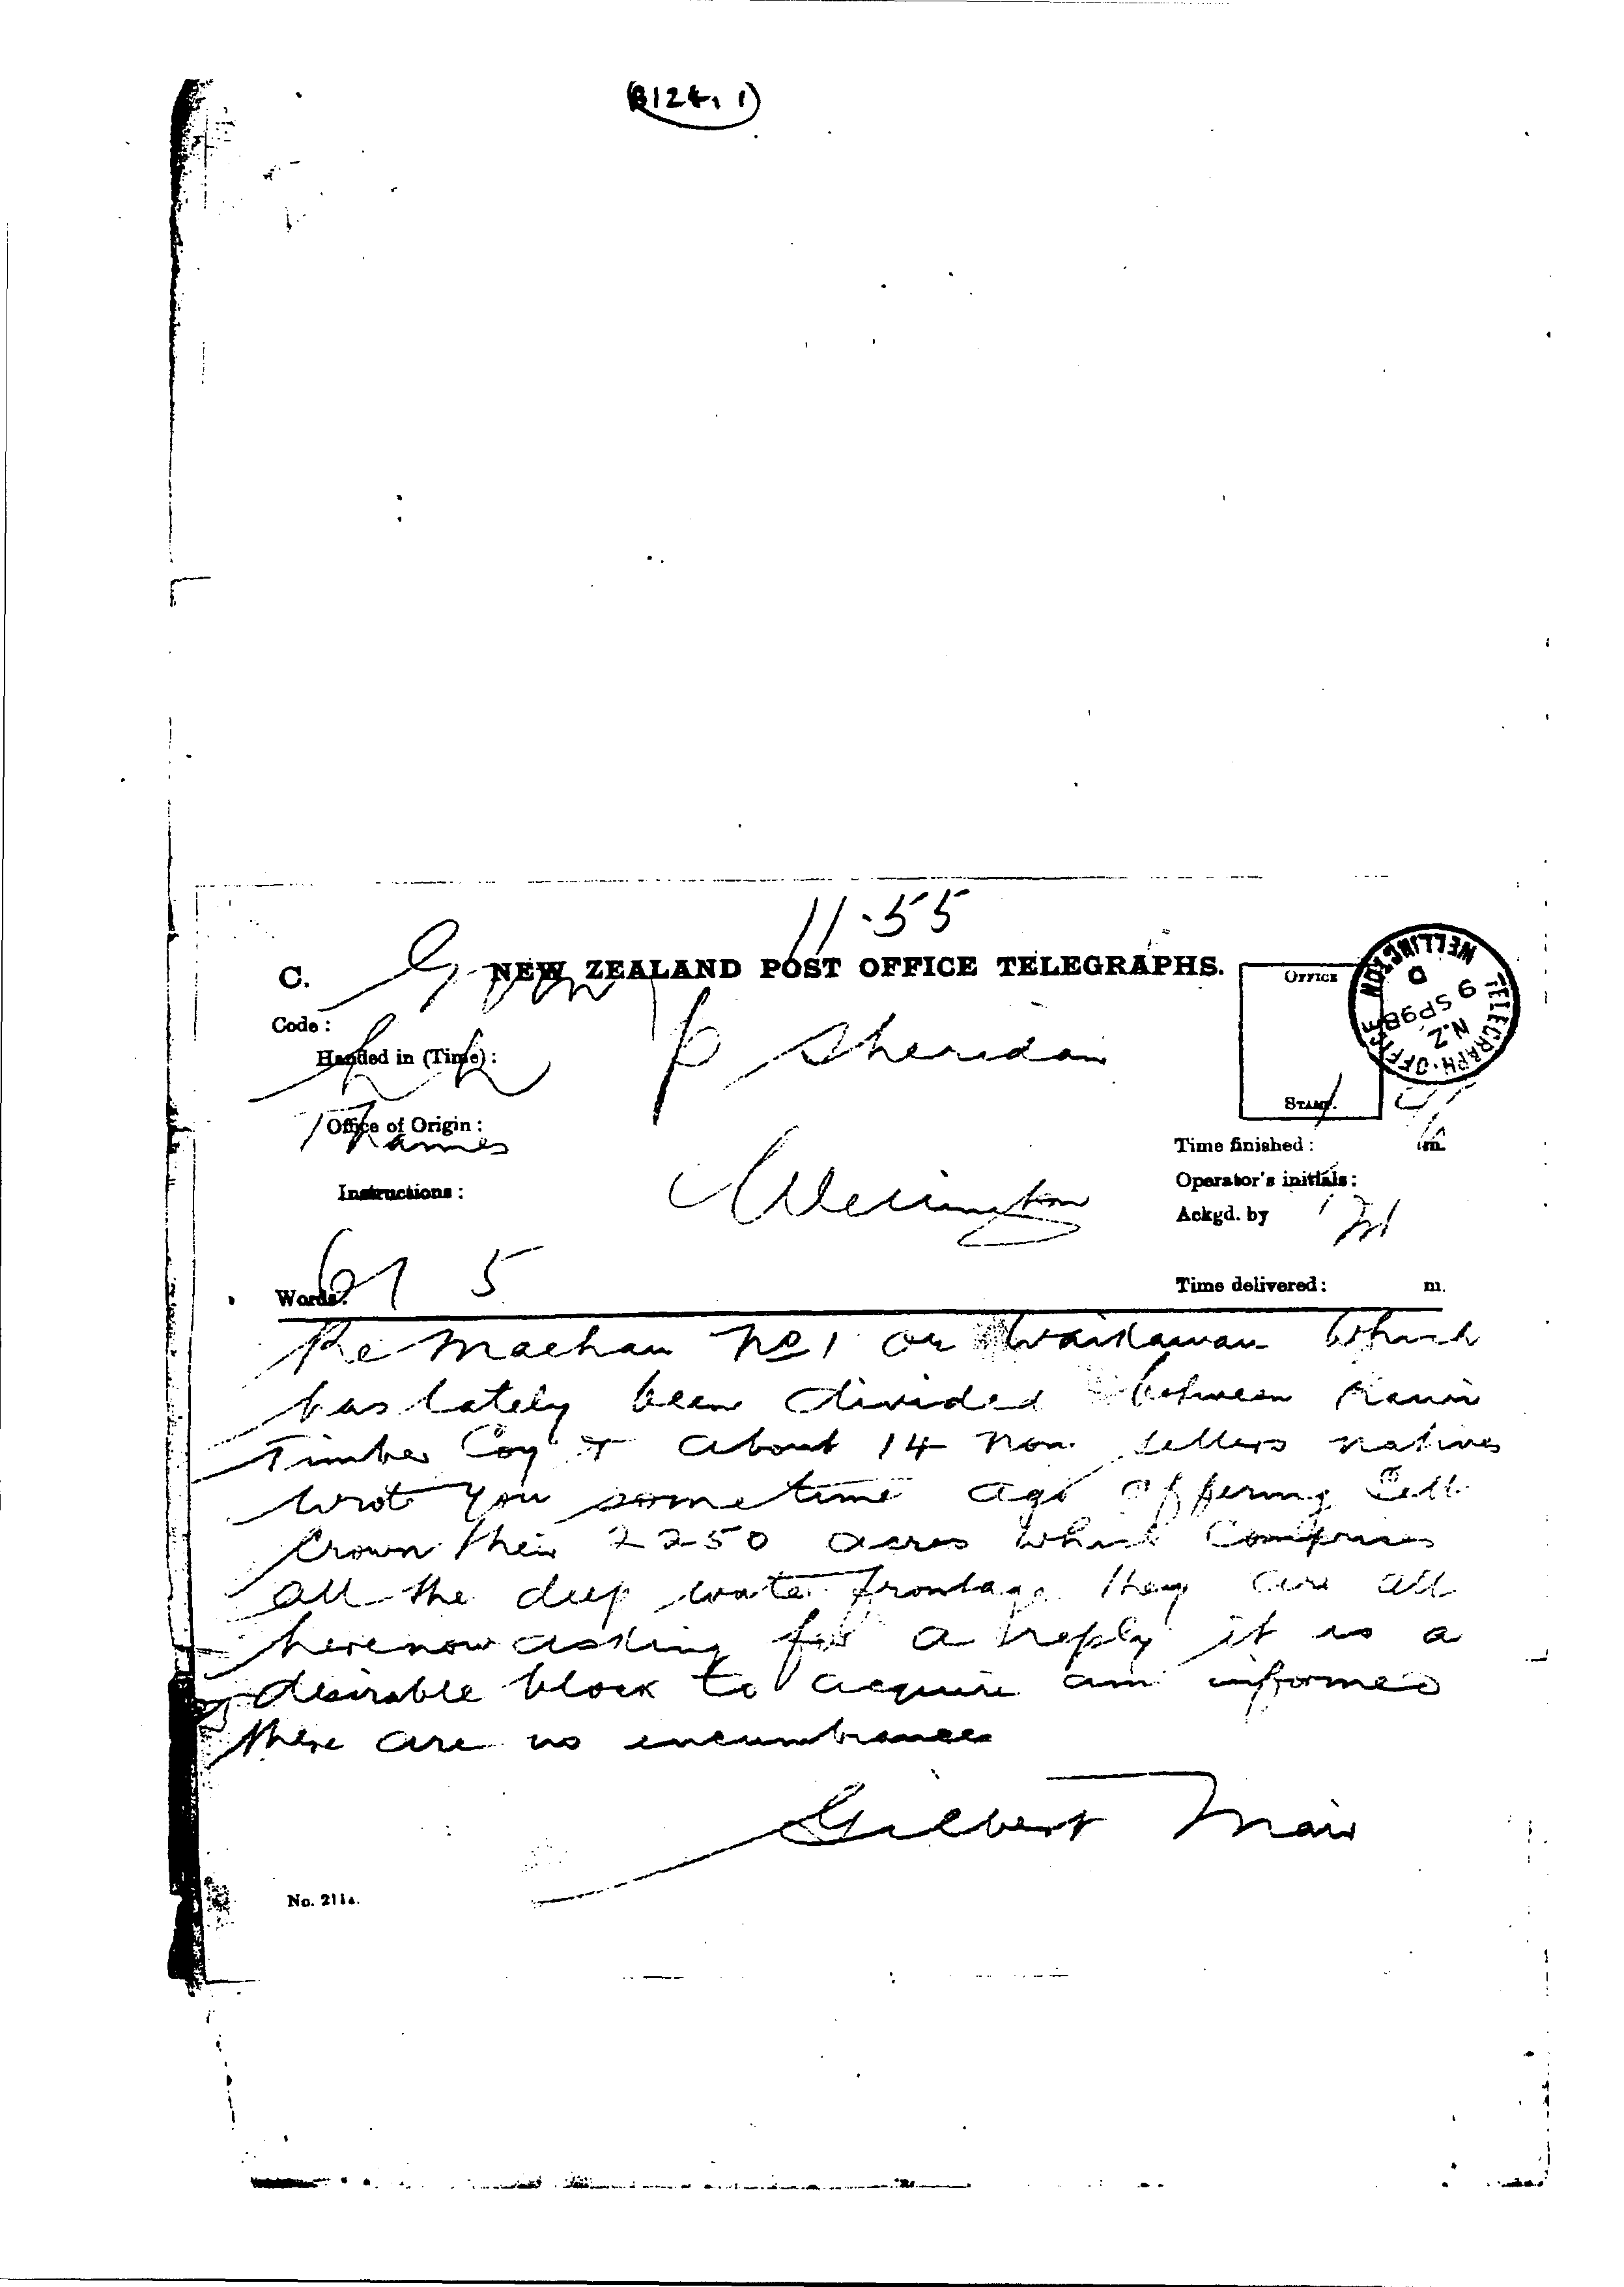 (B124.1)
11.55
C. NEW ZEALAND POST OFFICE TELEGRAPHS.
Govn
OFFICE
STAMP.
TELEGRAPH·OFFICE WELLINGTON
D
9 SP 98
N.Z.
Code :
Handed in (Time) :
P Sheridan
Office of Origin :
Thames
Time finished : m.
Instructions :
Wellington
Operator's initials :
Ackgd. by
Words: 67 5
Time delivered : m.
Re Maehau No 1 or Waikawau which
has lately been divided between Kauri
Timber Coy & about 14 non sellers natives
wrote you sometime ago offering sell
Crown their 2250 acres which comprises
all the deep water frontage they are all
here now asking for a reply it is a
desirable block to acquire am informed
there are no encumbrances
Gilbert Mair
No. 211A.